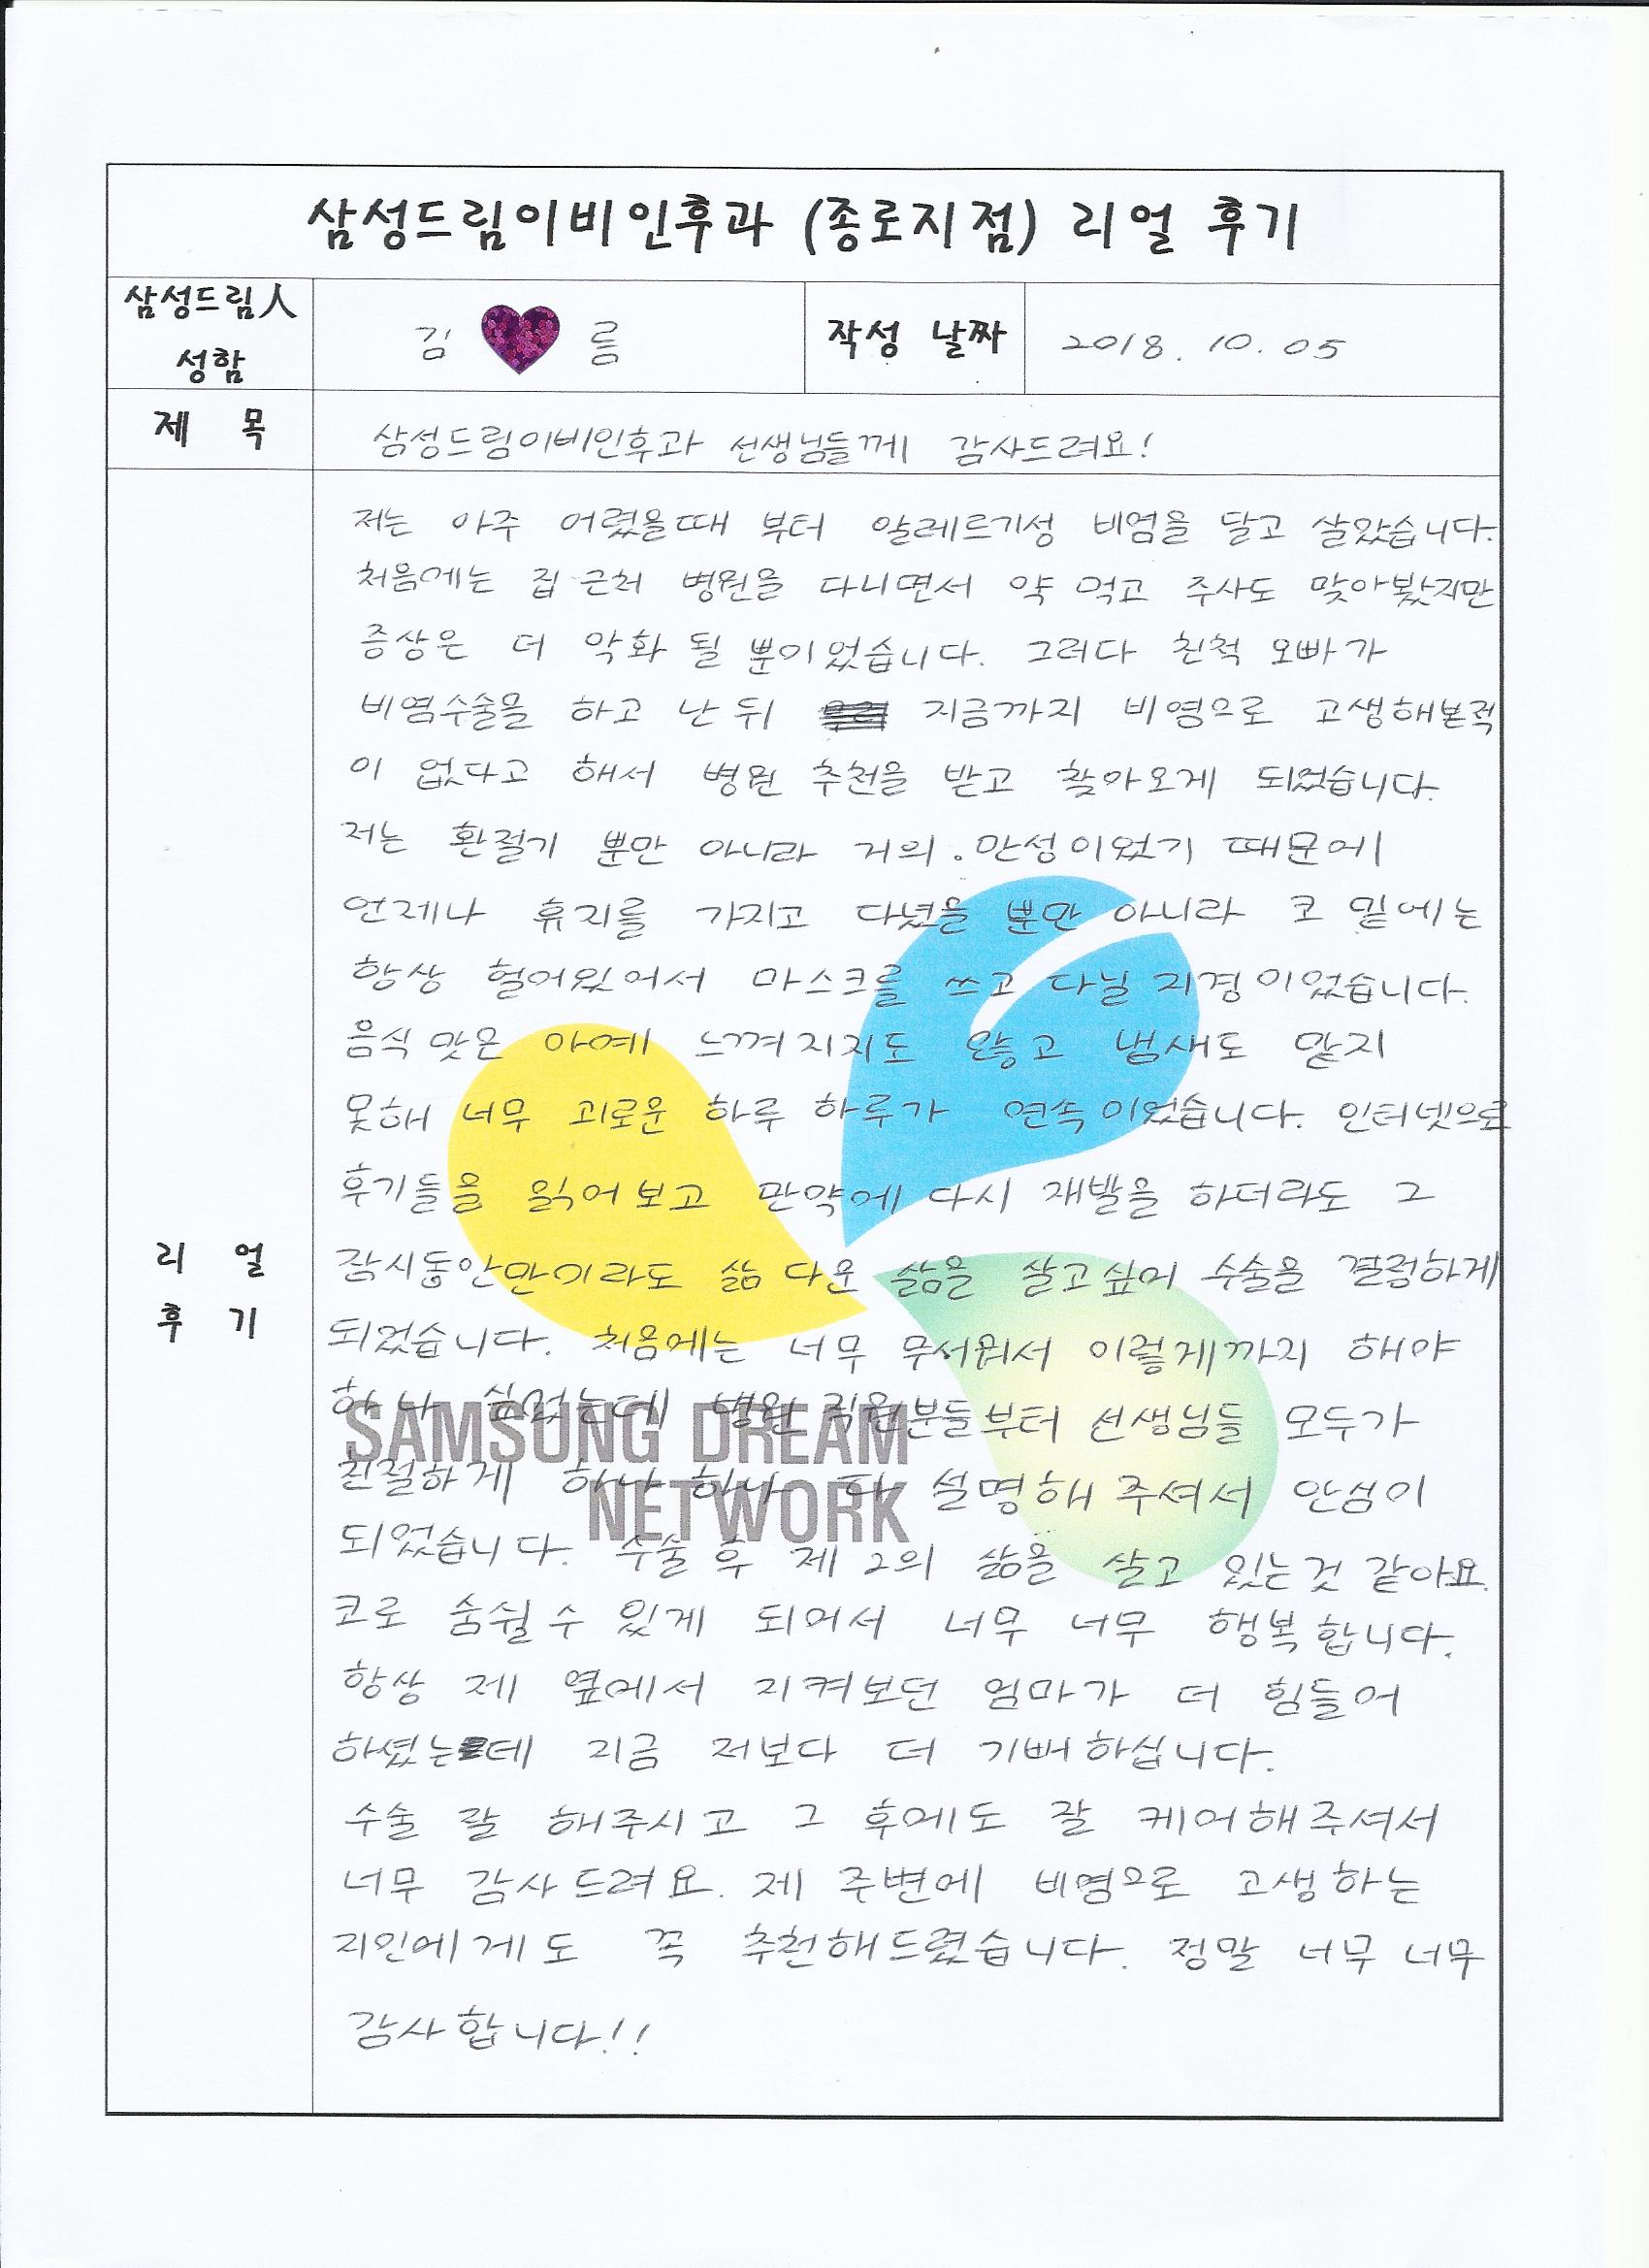 삼성드림이비인후과 (종로지점) 리얼 후기
삼성드림人
성함
김 름
작성 날짜
2018. 10. 05
제 목
삼성드림이비인후과 선생님들께 감사드려요!
리 얼
후 기
저는 아주 어렸을때 부터 알레르기성 비염을 달고 살았습니다.
처음에는 집 근처 병원을 다니면서 약 먹고 주사도 맞아봤지만
증상은 더 악화 될 뿐이었습니다. 그러다 친척 오빠가
비염수술을 하고 난 뒤 지금까지 비염으로 고생해본적
이 없다고 해서 병원 추천을 받고 찾아오게 되었습니다.
저는 환절기 뿐만 아니라 거의 만성이었기 때문에
언제나 휴지를 가지고 다녔을 뿐만 아니라 코 밑에는
항상 헐어있어서 마스크를 쓰고 다닐 지경이었습니다.
음식 맛은 아예 느껴지지도 않고 냄새도 맡지
못해 너무 괴로운 하루 하루가 연속이었습니다. 인터넷으로
후기들을 읽어보고 만약에 다시 재발을 하더라도 그
잠시동안만이라도 삶 다운 삶을 살고싶어 수술을 결정하게
되었습니다. 처음에는 너무 무서워서 이렇게까지 해야
하나 싶었는데 병원 직원분들부터 선생님들 모두가
친절하게 하나 하나 다 설명해 주셔서 안심이
되었습니다. 수술 후 제 2의 삶을 살고 있는것 같아요.
코로 숨쉴수 있게 되어서 너무 너무 행복합니다.
항상 제 옆에서 지켜보던 엄마가 더 힘들어
하셨는데 지금 저보다 더 기뻐하십니다.
수술 잘 해주시고 그 후에도 잘 케어해주셔서
너무 감사드려요. 제 주변에 비염으로 고생하는
지인에게도 꼭 추천해드렸습니다. 정말 너무 너무
감사합니다!!
SAMSUNG DREAM
NETWORK